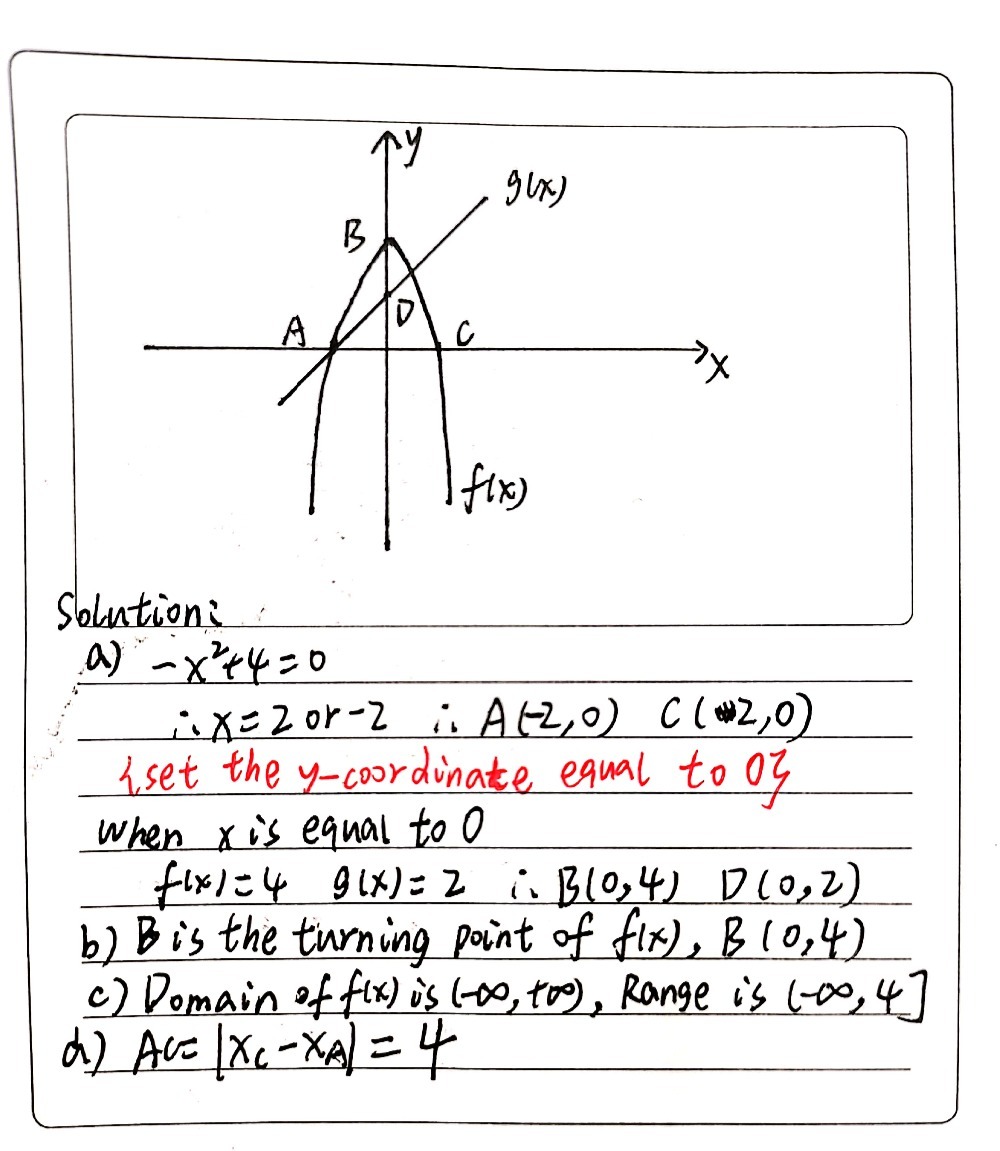 y
g(x)
B
D
A
C
x
f(x)
Solution:
a) -x²+4=0
∴ x=2 or -2 ∴ A(-2,0) C(2,0)
{set the y-coordinate equal to 0}
when x is equal to 0
f(x)=4 g(x)=2 ∴ B(0,4) D(0,2)
b) B is the turning point of f(x), B(0,4)
c) Domain of f(x) is (-∞,+∞), Range is (-∞,4]
d) AC= |x_C-x_A|=4